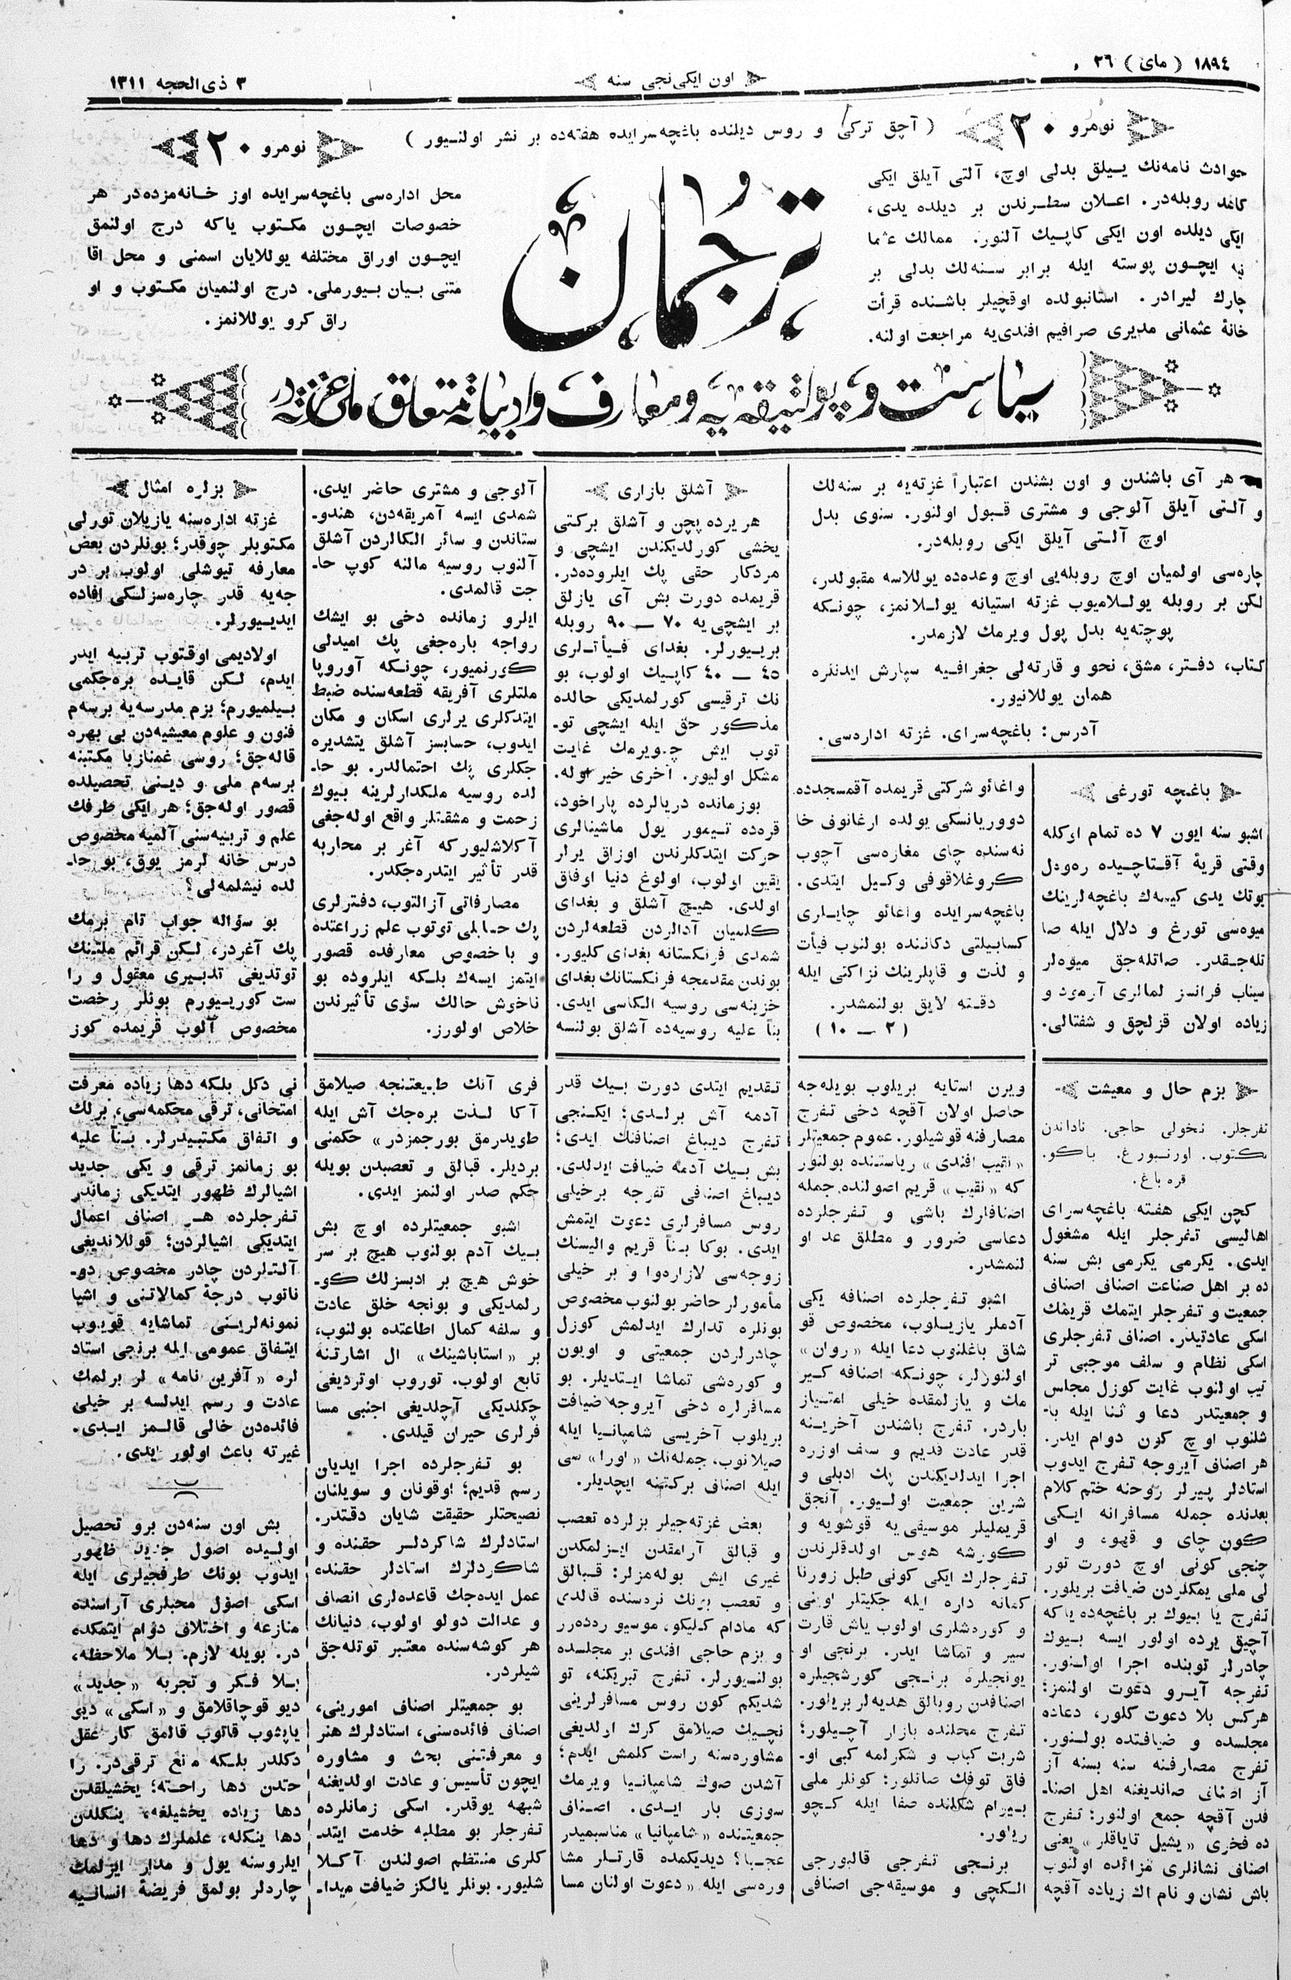 ١٨٩٤ ( مای ) ٢٦
اون ایکی نجی سنه
٣ ذی الحجه ١٣١١
نومرو ٢٠
( آچق ترکی و روس دیلنده باغچه سرایده هفته ده بر نشر اولنیور )
نومرو ٢٠
حوادث نامه نك ییلق بدلی اوچ، آلتی آیلق ایکی
کاغد روبله در. اعلان سطرندن بر دیلده یدی،
ایکی دیلده اون ایکی کاپیك آلنور. ممالك عثما
نیه ایچون پوسته ایله برابر سنه لك بدلی بر
چارك لیرادر. استانبولده اوقچیلر باشنده قرأت
خانهٔ عثمانی مدیری صرافیم افندی یه مراجعت اولنه.
ترجمان
محل اداره سی باغچه سرایده اوز خانه مزده در هر
خصوصات ایچون مکتوب یا که درج اولنمق
ایچون اوراق مختلفه یوللایان اسمنی و محل اقا
متنی بیان بیورملی. درج اولنمیان مکتوب و او
راق کرو یوللانمز.
سیاست و پولتیقه یه و معارف و ادبیاته متعلق ملی غزته در
هر آی باشندن و اون بشندن اعتباراً غزته یه بر سنه لك
و آلتی آیلق آلوجی و مشتری قبول اولنور. سنوی بدل
اوچ آلتی آیلق ایکی روبله در.
چاره سی اولمیان اوچ روبله یی اوچ وعده ده یوللاسه مقبولدر،
لکن بر روبله یوللامیوب غزته استیانه یوللانمز، چونکه
پوچته یه بدل پول ویرمك لازمدر.
کتاب، دفتر، مشق، نحو و قارته لی جغرافیه سپارش ایدنلره
همان یوللانیور.
آدرس: باغچه سرای. غزته اداره سی.
باغچه تورغی
اشبو سنه ایون ٧ ده تمام اوکله
وقتی قریهٔ آقتاچیده ره ودل
یوتك یدی کیسه ك باغچه لرینك
میوه سی تورغ و دلال ایله صا
تله جقدر. صاتله جق میوه لر
سیناپ فرانسز لمالری آرمود و
زیاده اولان قزلجق و شفتالی.
واغائو شرکتی قریمده آقمسجدده
دووریانسکی یولده ارغانوف خا
نه سنده چای مغازه سی آچوب
کروغلاقوفی وکیل ایتدی.
باغچه سرایده واغائو چایلری
کسابیلتی دکاننده بولنوب فیأت
و لذت و قاپلرینك نزاکتی ایله
دقته لایق بولنمشدر.
( ٢ — ١٠ )
آشلق بازاری
هر یرده پچن و آشلق برکتی
یخشی کورلدیکندن ایشچی و
مردکار حقی پك ایلروده در.
قریمده دورت بش آی یازلق
بر ایشچی یه ٧٠ — ٩٠ روبله
بریورلر. بغدای فیأتلری
٤٥ — ٤٠ کاپیك اولوب، بو
نك ترقیسی کورلمدیکی حالده
مذکور حق ایله ایشچی تو-
توب ایش چویرمك غایت
مشکل اولیور. آخری خیر اوله.
بوزمانده دریالرده پاراخود،
قره ده تیمور یول ماشینالری
حرکت ایتدکلرندن اوزاق یرلر
یقین اولوب، اولوغ دنیا اوفاق
اولدی. هیچ آشلق و بغدای
کلمیان آدالردن قطعه لردن
شمدی فرنکستانه بغدای کلیور.
بوندن مقدمجه فرنکستانك بغدای
خزینه سی روسیه الکاسی ایدی.
بنأ علیه روسیه ده آشلق بولنسه
آلوجی و مشتری حاضر ایدی.
شمدی ایسه آمریقه دن، هندو-
ستاندن و سائر الکالردن آشلق
آلنوب روسیه مالنه کوپ حا-
جت قالمدی.
ایلرو زمانده دخی بو ایشك
رواجه باره جغی پك امیدلی
کورنمیور، چونکه آوروپا
ملتلری آفریقه قطعه سنده ضبط
ایتدکلری یرلری اسکان و مکان
ایدوب، حسابسز آشلق یتشدیره
جکلری پك احتمالدر. بو حا-
لده روسیه ملکدارلرینه بیوك
زحمت و مشقتلر واقع اوله جغی
آکلاشلیور که آغر بر محاربه
قدر تأثیر ایتدره جکدر.
مصارفاتی آزالتوب، دفترلری
پك حسابلی توتوب علم زراعتده
و با خصوص معارفده قصور
ایتمز ایسه ك بلکه ایلروده بو
ناخوش حالك سؤی تأثیرندن
خلاص اولورز.
بزلره امثال
غزته اداره سنه یازیلان تورلی
مکتوبلر چوقدر؛ بونلردن بعض
معارفه تیوشلی اولوب بر در
جه یه قدر چاره سزلکی افاده
ایدیورلر.
اولادیمی اوقتوب تربیه ایدر
ایدم، لکن قایده بره جکمی
بیلمیورم؛ بزم مدرسه یه برسه م
فنون و علوم معیشیه دن بی بهره
قاله جق؛ روسی غمنازیا مکتبنه
برسه م ملی و دینی تحصیلده
قصور اوله جق؛ هر ایکی طرفك
علم و تربیه سنی آلمیه مخصوص
درس خانه لرمز یوق، بو حا-
لده نیشلمه لی؟
بو سؤاله جواب تام برمك
پك آغردز، لکن قرائم ملتینك
توتدیغی تدبیری معقول و را
ست کوریورم بونلر رخصت
مخصوص آلوب قریمده کوز
بزم حال و معیشت
تفرجلر. نخولی حاجی. ناداندن
مکتوب. اورنبورغ. باکو.
قره باغ.
کچن ایکی هفته باغچه سرای
اهالیسی تفرجلر ایله مشغول
ایدی. یکرمی یکرمی بش سنه
ده بر اهل صناعت اصناف اصناف
جمعیت و تفرجلر ایتمك قریمك
اسکی عادتیدر. اصناف تفرجلری
اسکی نظام و سلف موجبی تر
تیب اولنوب غایت کوزل مجلس
و جمعیتدر دعا و ثنا ایله با-
شلنوب اوچ کون دوام ایدر.
هر اصناف آیروجه تفرج ایدوب
استادلر پیرلر روحنه ختم کلام
بعدنده جمله مسافرانه ایکی
کون چای و قهوه، و او
چنجی کونی اوچ دورت تور
لی ملی یمکلردن ضیافت بریلور.
تفرج یا بیوك بر باغچه ده یا که
آچیق یرده اولور ایسه بیوك
چادرلر توبنده اجرا اولنور.
تفرجه آیرو دعوت اولنمز؛
هرکس بلا دعوت کلور، دعاده
مجلسده و ضیافتده بولنور.
تفرج مصارفنه سنه بسنه آز
آز اصنافی صاندیغنه اهل اصنا-
فدن آقچه جمع اولنور؛ تفرج
ده فخری «یشیل تایاقلر» یعنی
اصنافی نشانلری مزائده اولنوب
باش نشان و نام اك زیاده آقچه
ویرن استایه بریلوب بویله جه
حاصل اولان آقچه دخی تفرج
مصارفنه قوشیلور. عموم جمعیتلر
«نقیب افندی» ریاستنده بولنور
که «نقیب» قریم اصولنده جمله
اصنافلرك باشی و تفرجلرده
دعاسی ضرور و مطلق عد او
لنمشدر.
اشبو تفرجلرده اصنافه یکی
آدملر یازیلوب، مخصوص قو
شاق باغلنوب دعا ایله «روان»
اولنورلر، چونکه اصنافه کیر
مك و یازلمقده خیلی امتیاز
باردر. تفرج باشندن آخرینه
قدر عادت قدیم و سلف اوزره
اجرا ایدلدیکندن پك ادبلی و
شرین جمعیت اولیور. آنجق
قریملیلر موسیقی یه قوشویه و
کورشه هوس اولدقلرندن
تفرجلرك ایکی کونی طبل زورنا
کمانه داره ایله جکیتلر اونی
و کوره شلری اولوب یاش قارت
سیر و تماشا ایدر. برنجی او
یونجیلره برنجی کورشجیلره
اصنافدن روبالق هدیه لر بریلور.
تفرج محلنده بازار آچیلور؛
شربت کباب و شکرلمه کبی او-
فاق توفك صاتلور؛ کونلر ملی
بیرام شکلنده صفا ایله کچو
ریلور.
برنجی تفرجی قالبورجی
الکچی و موسیقه جی اصنافی
تقدیم ایتدی دورت بیك قدر
آدمه آش برلدی؛ ایکنجی
تفرج دیباغ اصنافنك ایدی؛
بش بیك آدمه ضیافت ایدلدی.
دیباغ اصنافی تفرجه برخیلی
روس مسافرلری دعوت ایتمش
ایدی. بوکا بنأ قریم والیسنك
زوجه سی لازاره وا و بر خیلی
مأمورلر حاضر بولنوب مخصوص
بونلره تدارك ایدلمش کوزل
چادرلردن جمعیتی و اویون
و کوره شی تماشا ایتدیلر. بو
مسافرلره دخی آیروجه ضیافت
بریلوب آخریسی شامپانیا ایله
صیلانوب، جمله نك «اورا» سی
ایله اصناف برکتنه ایچدیلر.
بعض غزته جیلر بزلرده تعصب
و قبالق آرامقدن ایزلمکدن
غیری ایش بوله مزلر؛ قبالق
و تعصب بزنك نره سنده قالدی
که مادام کلیکو، موسیو ره ده رر
و بزم حاجی افندی بر مجلسده
بولنیورلر. تفرج تبریکنه، تو
شدیکم کون روس مسافرلرینی
نچیك صیلامق کرك اولدیغی
مشاوره سنه راست کلمش ایدم؛
آشدن صوك شامپانیا ویرمك
سوزی بار ایدی. اصناف
جمعیتنده «شامپانیا» مناسبمیدر
عجبا؟ دیدیکمده قارتلر مشا
وره سی ایله «دعوت اولنان مسا
فری آنك طبیعتنجه صیلامق
آکا لذت بره جك آش ایله
طویدرمق بورجمزدر» حکمنی
بردیلر. قبالق و تعصبدن بویله
حکم صدر اولنمز ایدی.
اشبو جمعیتلرده اوچ بش
بیك آدم بولنوب هیچ بر سر
خوش هیچ بر ادبسزلك کو-
رلمدیکی و بونجه خلق عادت
و سلفه کمال اطاعتده بولنوب،
بر «استاباشینك» ال اشارتنه
تابع اولوب. توروب اوتردیغی
چکلدیکی آچلدیغی اجنبی مسا
فرلری حیران قیلدی.
بو تفرجلرده اجرا ایدیان
رسم قدیم؛ اوقونان و سویلنان
نصیحتلر حقیقت شایان دقتدر.
استادلرك شاکردلر حقنده و
شاکردلرك استادلر حقنده
عمل ایده جك قاعده لری انصاف
و عدالت دولو اولوب، دنیانك
هر کوشه سنده معتبر توتله جق
شیلردر.
بو جمعیتلر اصناف امورینی،
اصنافی فائده سنی، استادلرك هنر
و معرفتنی بحث و مشاوره
ایچون تأسیس و عادت اولدیغنه
شبهه یوقدر. اسکی زمانلرده
تفرجلر بو مطلبه خدمت ایتد-
کلری منتظم اصولندن آکلا
شلیور. بونلر یالکز ضیافت میدا-
نی دکل بلکه دها زیاده معرفت
امتحانی، ترقی محکمه سی، برلك
و اتفاق مکتبیدرلر. بنأ علیه
بو زمانمز ترقی و یکی جدید
اشیالرك ظهور ایتدیکی زماندر
تفرجلرده هر اصناف اعمال
ایتدیکی اشیالردن؛ قوللاندیغی
آلتلردن چادر مخصوص دو-
ناتوب درجهٔ کمالاتنی و اشیا
نمونه لرینی تماشایه قویوب
ایتفاق عمومی ایله برنجی استاد
لره «آفرین نامه» لر برلمك
عادت و رسم ایدلسه بر خیلی
فائده دن خالی قالمز ایدی.
غیرته باعث اولور ایدی.
بش اون سنه دن برو تحصیل
اولیده اصول جدید ظهور
ایدوب بونك طرفجیلری ایله
اسکی اصول محبلری آراسنده
منازعه و اختلاف دوام ایتمکده
در. بویله لازم. بلا ملاحظه،
بلا فکر و تجربه «جدید»
دیو قوچاقلامق و «اسکی» دیو
یاپشوب قاتوب قالمق کار عقل
دکلدر بلکه مانع ترقی در. را
حتدن دها راحته؛ یخشیلقدن
دها زیاده یخشیلغه، ینکلدن
دها ینکله، علملرك دها و دها
ایلروسنه یول و مدار ایزلمك
چاره لر بولمق فریضهٔ انسانیه